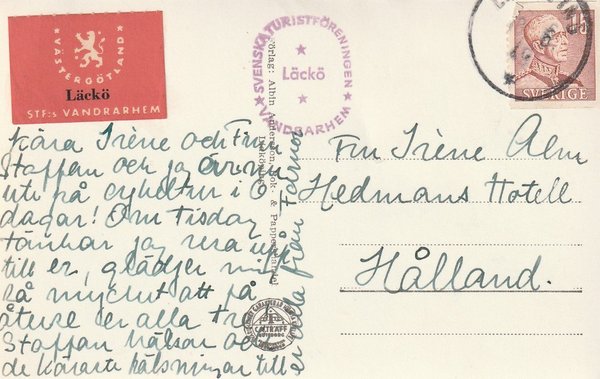 VÄSTERGÖTLAND
Läckö
STF:s VANDRARHEM
SVENSKA TURISTFÖRENINGEN
Läckö
VANDRARHEM
15
SVERIGE
Förlag: Albin Andersson, Bok- & Pappershandel
Kära Irène och Finn
Staffan och jag är nu
ute på cykeltur i 6
dagar! Om Tisdag
tänker jag resa upp
till er, glädjer mig
så mycket att få
återse er alla tre
Staffan hälsar och
de käraste hälsningar till
er alla från
Fru Irène Alm
Hedmans Hotell
Hålland.